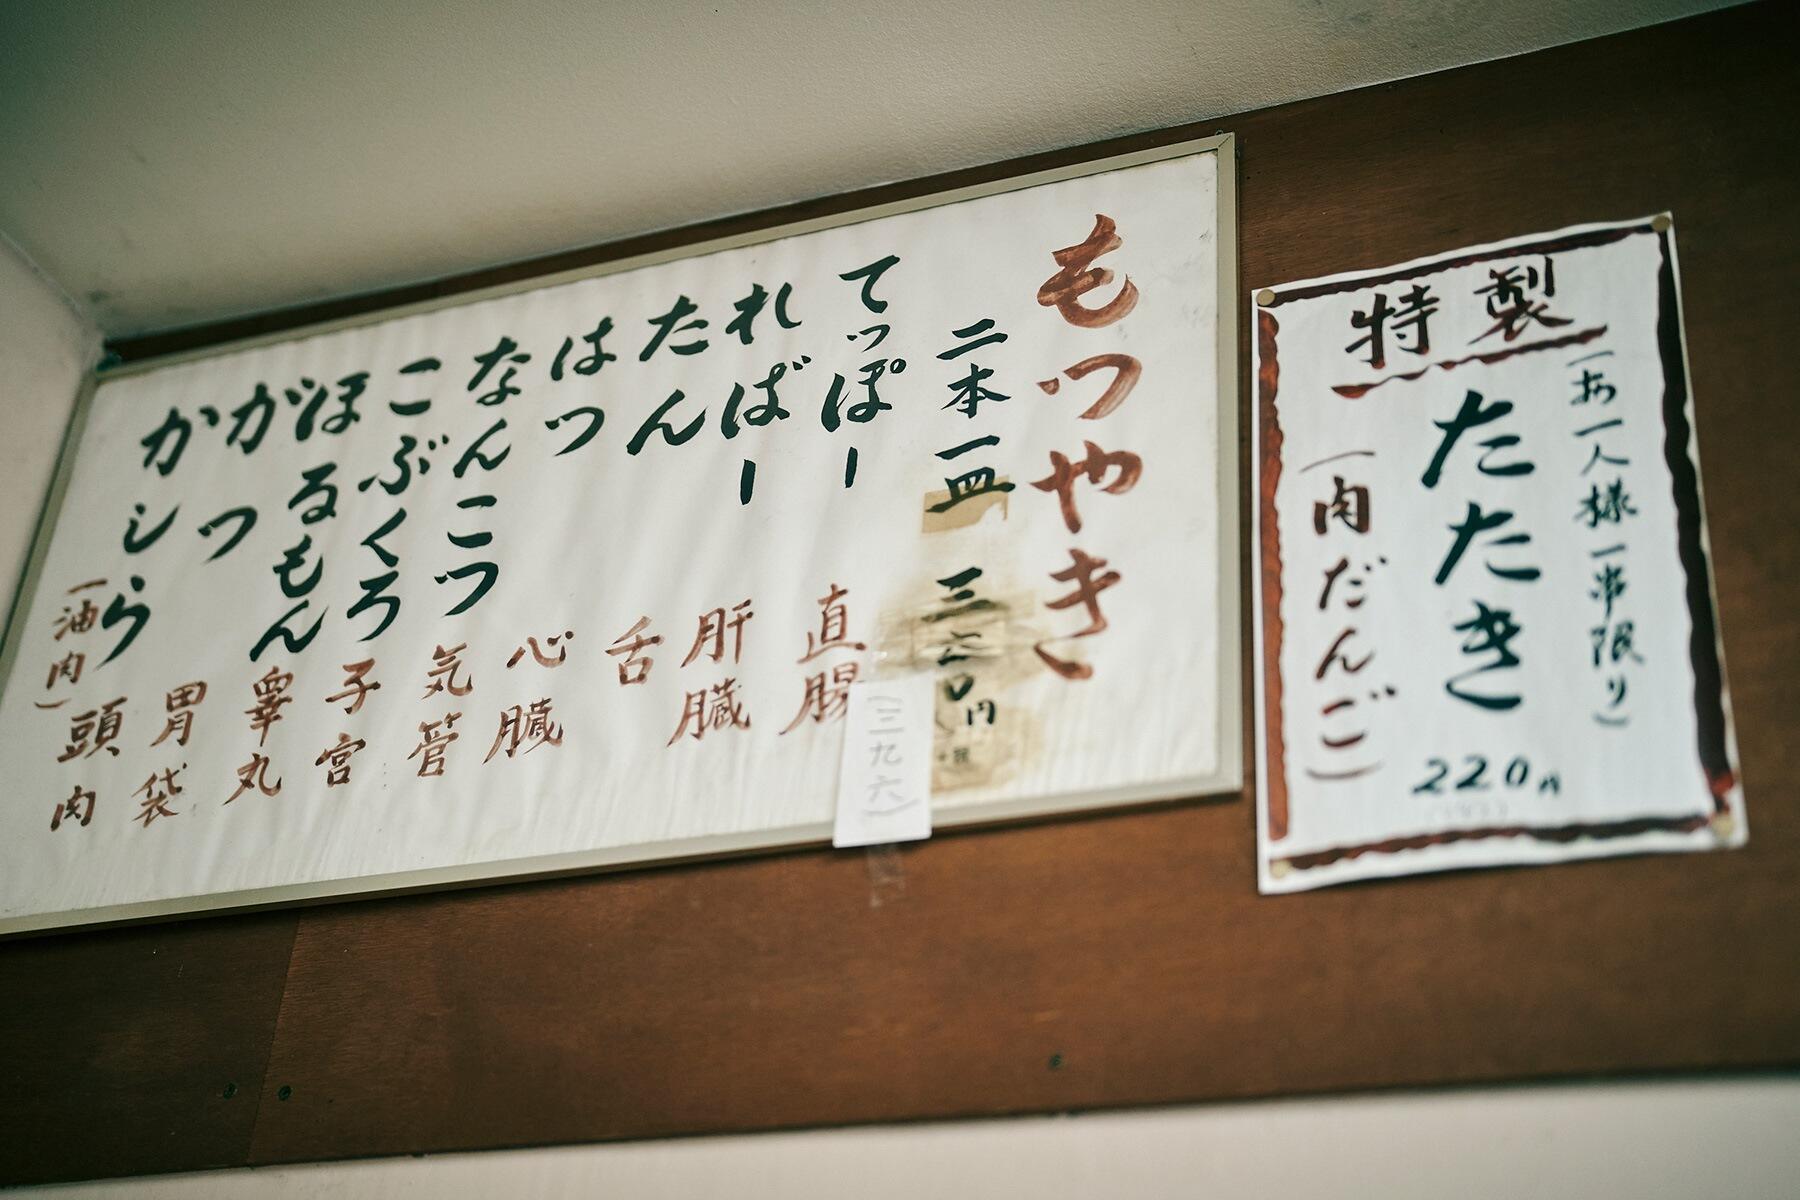 もつやき
二本一皿 三六〇円
(三九六)
てっぽー 直腸
ればー 肝臓
たん 舌
はつ 心臓
なんこつ 気管
こぶくろ 子宮
ほるもん 睾丸
がつ 胃袋
かしら 頭肉
(油肉)
特製
(お一人様一串限り)
たたき
220円
(肉だんご)